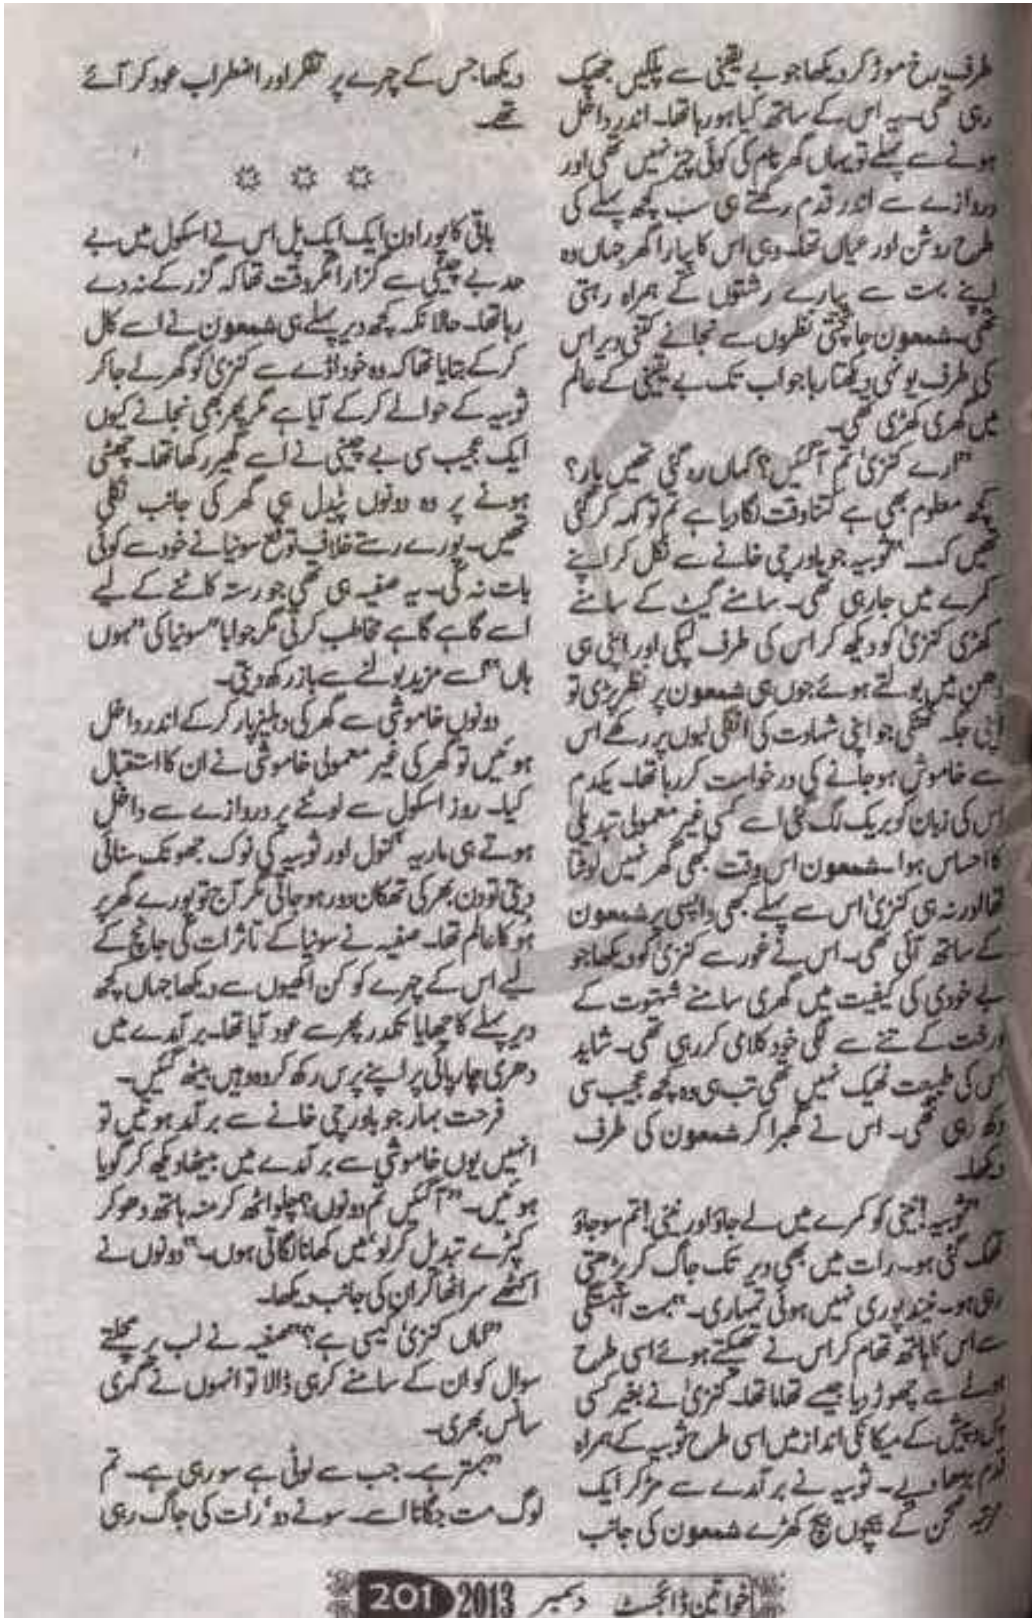 طرف رخ موڑ کر دیکھا جو بے یقینی سے پلکیں جھپک
رہی تھی۔ یہ اس کے ساتھ کیا ہو رہا تھا۔ اندر داخل
ہونے سے پہلے تو یہاں گھر نام کی کوئی چیز نہیں تھی اور
دروازے سے اندر قدم رکھتے ہی سب کچھ پہلے کی
طرح روشن اور عیاں تھا۔ وہی اس کا پیارا گھر جہاں وہ
اپنے بہت سے پیارے رشتوں کے ہمراہ رہتی
تھی۔ شمعون جانچتی نظروں سے نجانے کتنی دیر اس
کی طرف یونہی دیکھتا رہا جو اب تک بے یقینی کے عالم
میں گھری کھڑی تھی۔
"ارے کنزیٰ تم آ گئیں؟ کہاں رہ گئی تھیں یار؟
کچھ معلوم بھی ہے کتنا وقت لگا دیا ہے تم تو کہہ کر گئی
تھیں کہ۔" ثوبیہ جو باورچی خانے سے نکل کر اپنے
کمرے میں جا رہی تھی۔ سامنے گیٹ کے سامنے
کھڑی کنزیٰ کو دیکھ کر اس کی طرف لپکی اور اپنی ہی
دھن میں بولتے ہوئے جوں ہی شمعون پر نظر پڑی تو
اپنی جگہ ٹھٹکی جو اپنی شہادت کی انگلی لبوں پر رکھے اس
سے خاموش ہو جانے کی درخواست کر رہا تھا۔ یکدم
اس کی زبان کو بریک لگ گئی اسے کسی غیر معمولی تبدیلی
کا احساس ہوا۔ شمعون اس وقت کبھی گھر نہیں لوٹتا
تھا اور نہ ہی کنزیٰ اس سے پہلے کبھی واپسی پر شمعون
کے ساتھ آئی تھی۔ اس نے غور سے کنزیٰ کو دیکھا جو
بے خودی کی کیفیت میں گھری سامنے شہتوت کے
درخت کے تنے سے لگی خود کلامی کر رہی تھی۔ شاید
اس کی طبیعت ٹھیک نہیں تھی تب ہی وہ کچھ عجیب سی
دکھ رہی تھی۔ اس نے گھبرا کر شمعون کی طرف
دیکھا۔
"ثوبیہ! نینی کو کمرے میں لے جاؤ اور نینی! تم سو جاؤ
تھک گئی ہو۔ رات میں بھی دیر تک جاگ کر پڑھتی
رہی ہو۔ نیند پوری نہیں ہوئی تمہاری۔" بہت آہستگی
سے اس کا ہاتھ تھام کر اس نے تھپکتے ہوئے اسی طرح
ہولے سے چھوڑ دیا جیسے تھاما تھا۔ کنزیٰ نے بغیر کسی
پس و پیش کے میکانکی انداز میں اسی طرح ثوبیہ کے ہمراہ
قدم بڑھا دیے۔ ثوبیہ نے برآمدے سے مڑ کر ایک
مرتبہ صحن کے بیچوں بیچ کھڑے شمعون کی جانب
دیکھا جس کے چہرے پر تفکر اور اضطراب عود کر آئے
تھے۔
باقی کا پورا دن ایک ایک پل اس نے اسکول میں بے
حد بے چینی سے گزارا مگر وقت تھا کہ گزر کے نہ دے
رہا تھا۔ حالانکہ کچھ دیر پہلے ہی شمعون نے اسے کال
کر کے بتایا تھا کہ وہ خود اڈے سے کنزیٰ کو گھر لے جا کر
ثوبیہ کے حوالے کر کے آیا ہے مگر پھر بھی نجانے کیوں
ایک عجیب سی بے چینی نے اسے گھیر رکھا تھا۔ چھٹی
ہونے پر وہ دونوں پیدل ہی گھر کی جانب نکلی
تھیں۔ پورے رستے خلاف توقع سونیا نے خود سے کوئی
بات نہ کی۔ یہ صفیہ ہی تھی جو رستہ کاٹنے کے لیے
اسے گاہے گاہے مخاطب کرتی مگر جواباً "سونیا کی" ہوں
ہاں" اسے مزید بولنے سے باز رکھ دیتی۔
دونوں خاموشی سے گھر کی دہلیز پار کر کے اندر داخل
ہوئیں تو گھر کی غیر معمولی خاموشی نے ان کا استقبال
کیا۔ روز اسکول سے لوٹنے پر دروازے سے داخل
ہوتے ہی ماریہ ' کنول اور ثوبیہ کی نوک جھونک سنائی
دیتی تو دن بھر کی تھکان دور ہو جاتی مگر آج تو پورے گھر پر
ہو کا عالم تھا۔ صفیہ نے سونیا کے تاثرات کی جانچ کے
لیے اس کے چہرے کو کن اکھیوں سے دیکھا جہاں کچھ
دیر پہلے کا چھایا تکدر پھر سے عود آیا تھا۔ برآمدے میں
دھری چارپائی پر اپنے پرس رکھ کر وہ وہیں بیٹھ گئیں۔
فرحت بہار جو باورچی خانے سے برآمد ہوئیں تو
انہیں یوں خاموشی سے برآمدے میں بیٹھا دیکھ کر گویا
ہوئیں۔ "آ گئیں تم دونوں؟ چلو اٹھ کر منہ ہاتھ دھو کر
کپڑے تبدیل کر لو' میں کھانا لگاتی ہوں۔" دونوں نے
اکٹھے سر اٹھا کر ان کی جانب دیکھا۔
"اماں کنزیٰ کیسی ہے؟" صفیہ نے لب پر مچلتے
سوال کو ان کے سامنے کر ہی ڈالا تو انہوں نے گہری
سانس بھری۔
"بہتر ہے۔ جب سے لوٹی ہے سو رہی ہے۔ تم
لوگ مت جگانا اسے۔ سونے دو' رات کی جاگ رہی
خواتین ڈائجسٹ دسمبر 2013 201